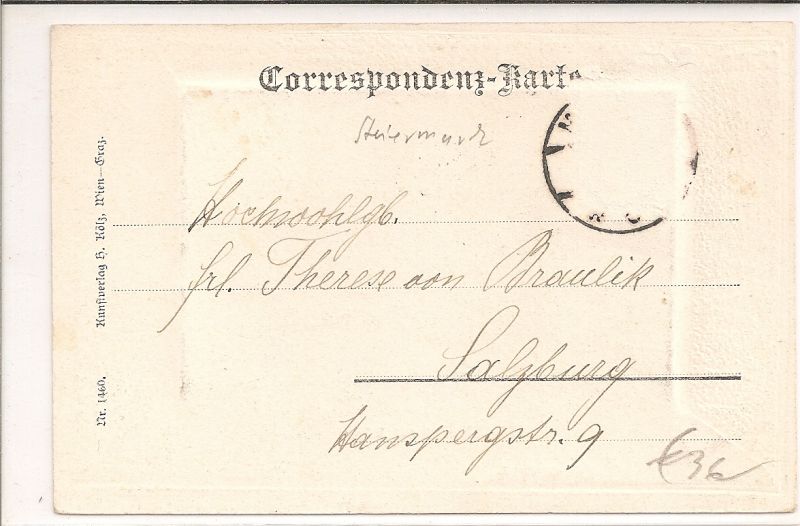 Correspondenz-Karte
Steiermark
Hochwohlgb.
Frl. Therese von Braulik
Salzburg
Hanspergstr. 9
€36
Nr. 1460. Kunstverlag H. Kölz, Wien–Graz.